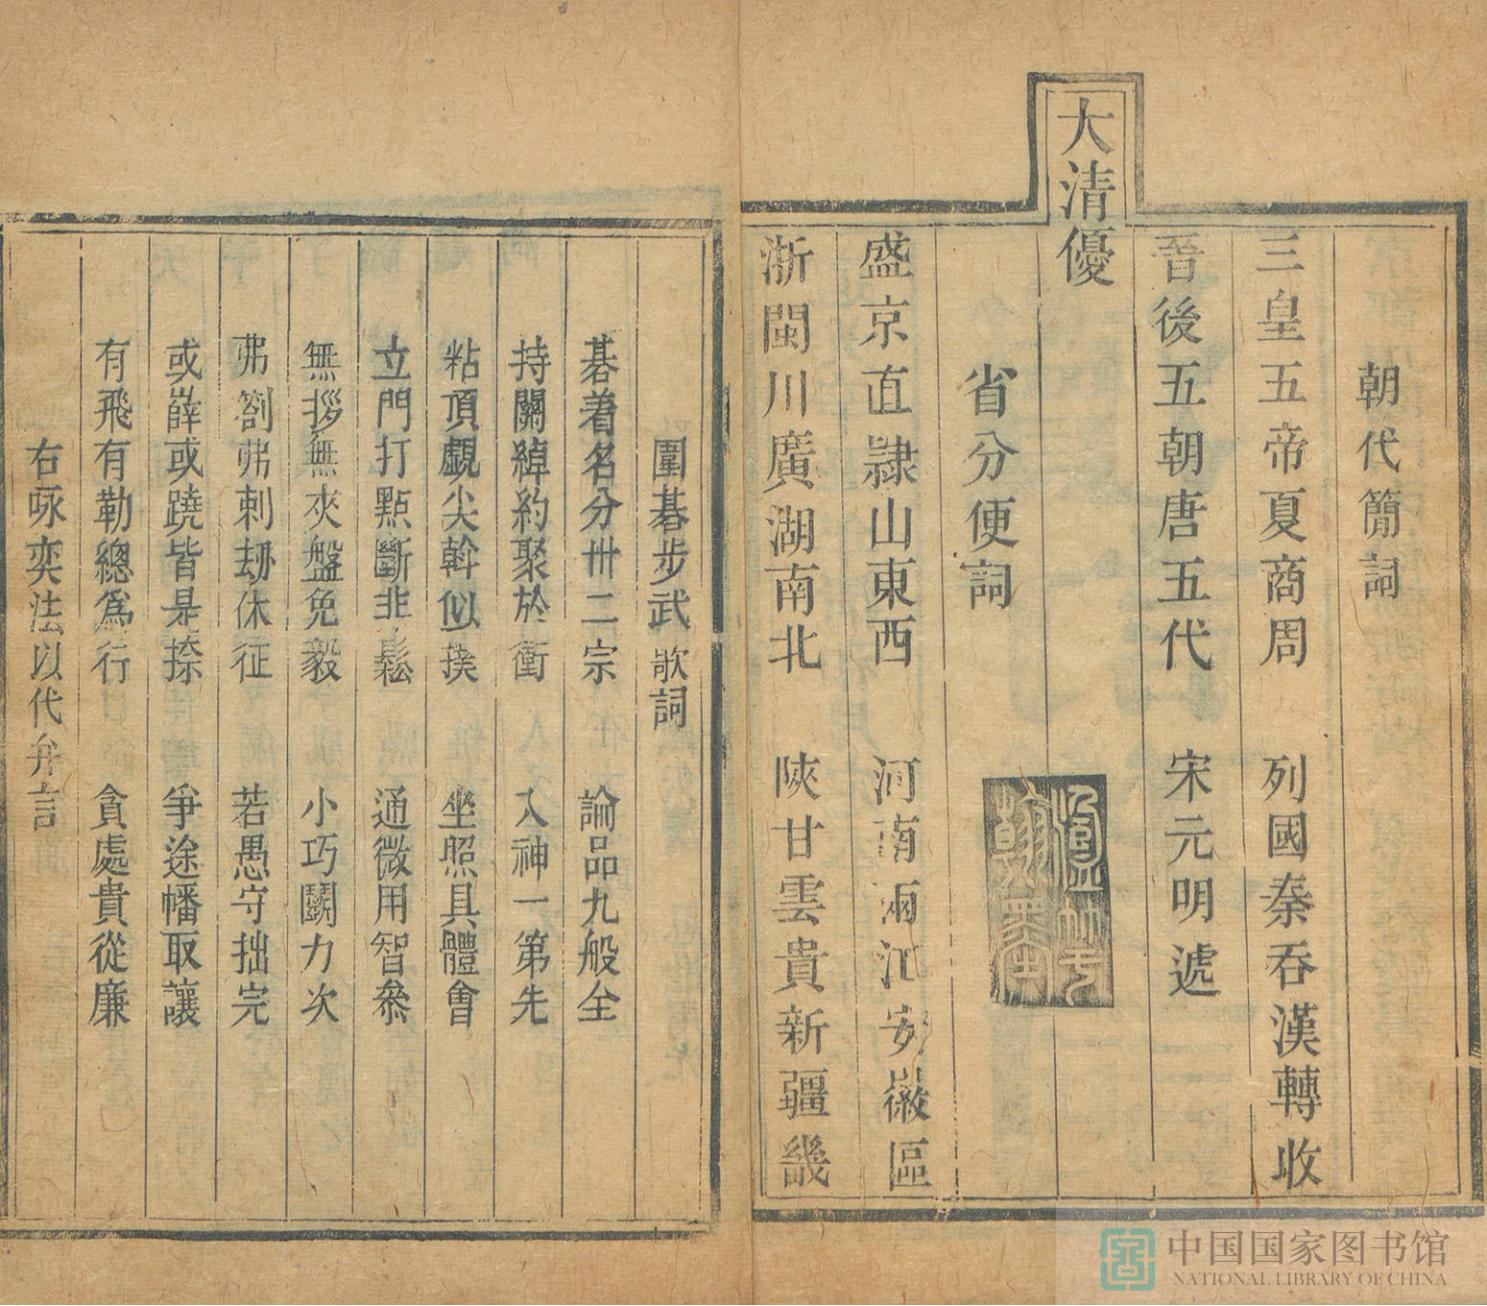 朝代簡詞
三皇五帝夏商周　列國秦吞漢轉收
晉後五朝唐五代　宋元明遞
大清優
省分便詞
盛京直隸山東西　河南兩江安徽區
浙閩川廣湖南北　陝甘雲貴新疆畿
圍碁步武歌詞
碁着名分卅二宗　論品九般全
持關綽約聚於衝　入神一第先
粘頂覷尖斡似撲　坐照具體會
立門打㸃斷非鬆　通微用智叅
無拶無夾盤免毅　小巧鬭力次
弗劄弗刺刼休征　若愚守拙完
或薛或蹺皆是捺　爭途幡取讓
有飛有勒總爲行　貪處貴從廉
右咏奕法以代弁言
中国国家图书馆
NATIONAL LIBRARY OF CHINA